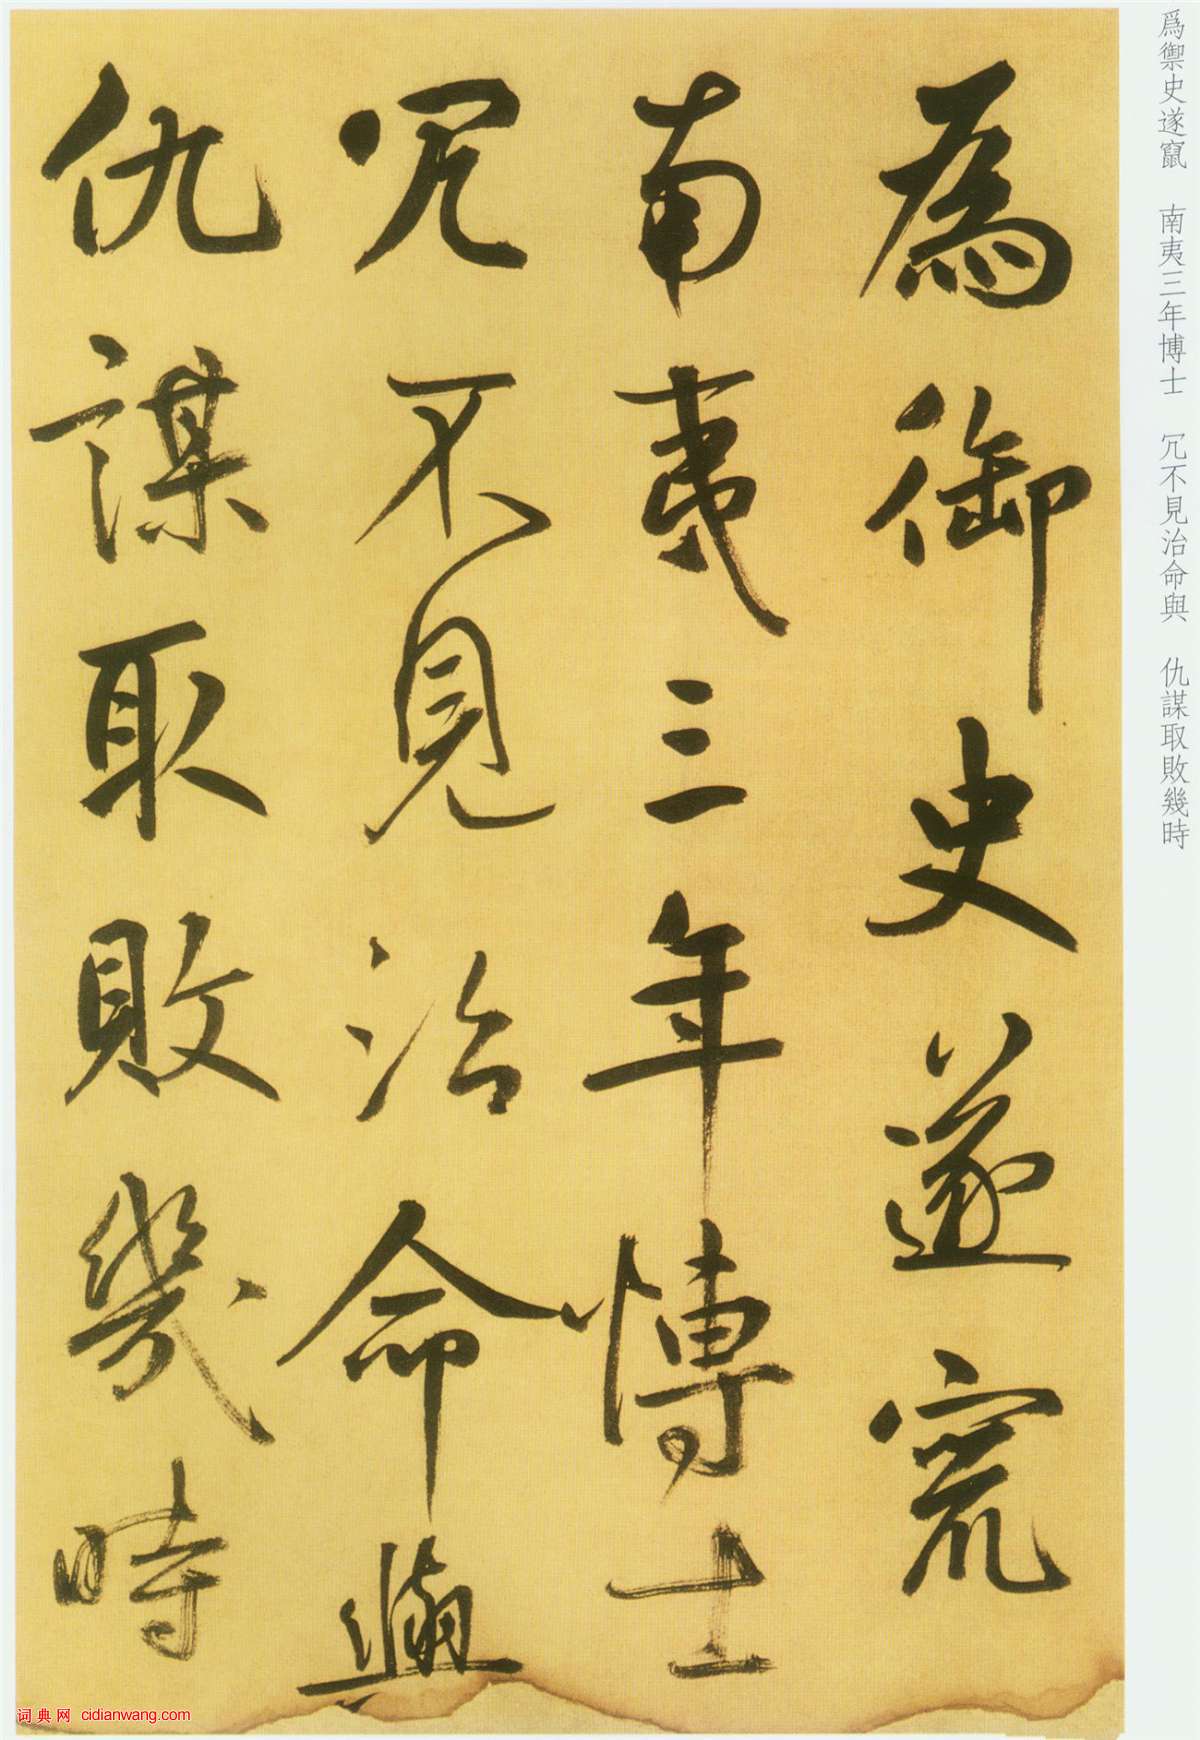 爲禦史遂竄 南夷三年博士 冗不見治命與 仇謀取敗幾時
爲御史遂竄
南夷三年博士
冗不見治命與
仇謀取敗幾時
词典网 cidianwang.com